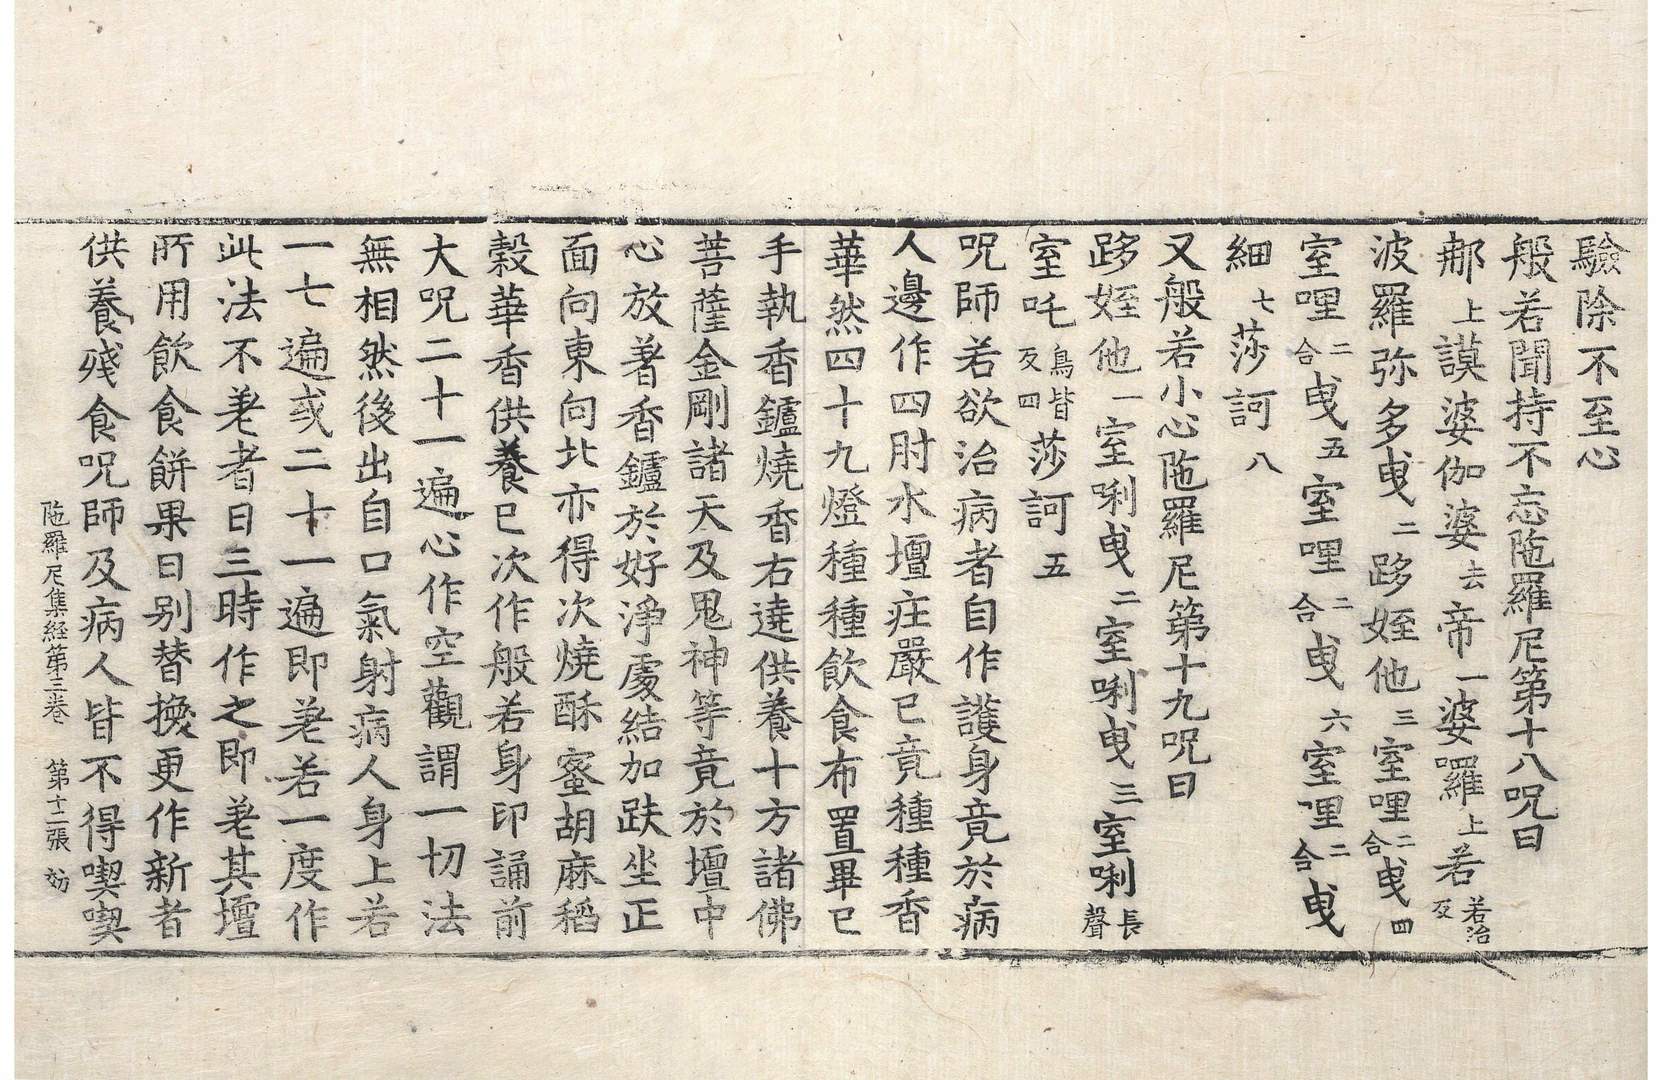 驗除不至心
般若聞持不忘陁羅尼第十八呪曰
那上謨婆伽婆去帝一婆囉上若若治反
波羅弥多曳二跢姪他三室哩二合曳四
室哩二合曳五室哩二合曳六室哩二合曳
細七莎訶八
又般若小心陁羅尼第十九呪曰
跢姪他一室唎曳二室唎曳三室唎長聲
室吒鳥皆反四莎訶五
呪師若欲治病者自作護身竟於病
人邊作四肘水壇庄嚴已竟種種香
華然四十九燈種種飲食布置畢已
手執香鑪燒香右遶供養十方諸佛
菩薩金剛諸天及鬼神等竟於壇中
心放著香鑪於好淨處結加趺坐正
面向東向北亦得次燒酥蜜胡麻稻
穀華香供養已次作般若身印誦前
大呪二十一遍心作空觀謂一切法
無相然後出自口氣射病人身上若
一七遍或二十一遍即差若一度作
此法不差者日三時作之即差其壇
所用飲食餅果日別替換更作新者
供養殘食呪師及病人皆不得喫喫
陁羅尼集経第三卷 第十二張 妢